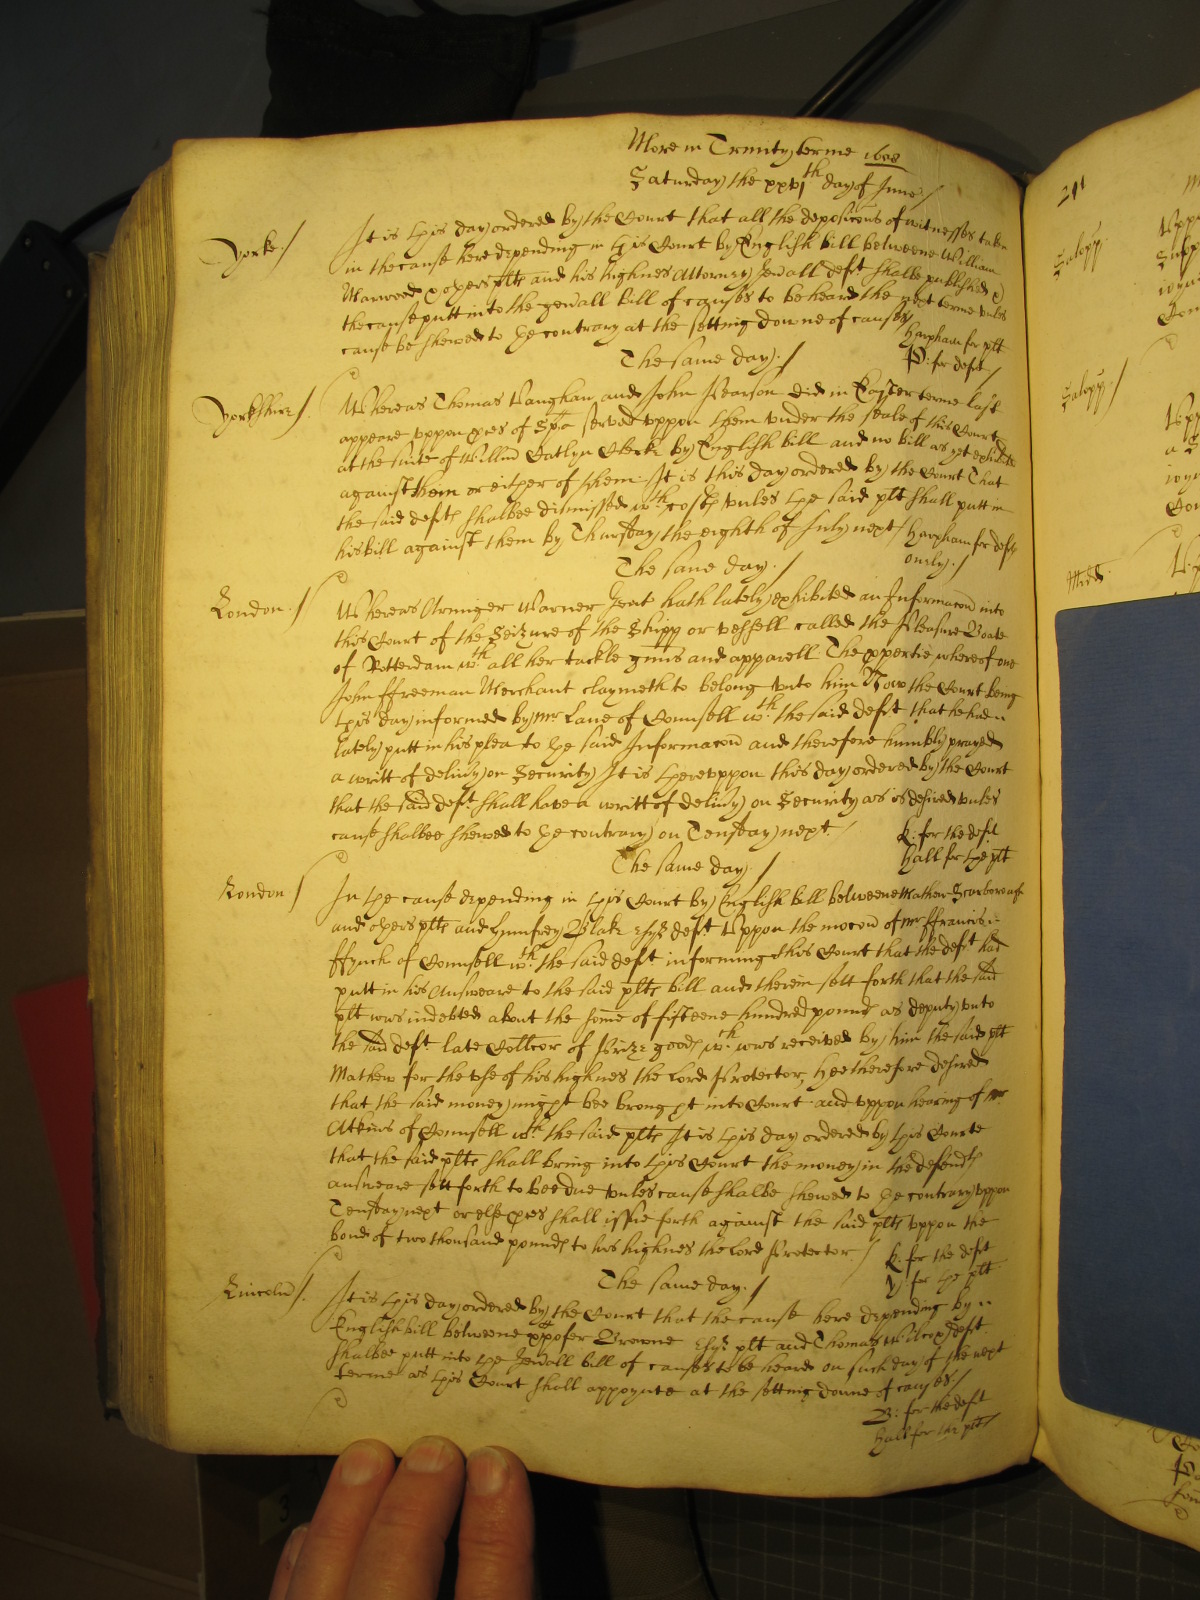 More in Trinity terme 1658
Saturday the xxvjth day of June /
Yorke. /
It is this day ordered by the Court that all the deposicons of witnesses taken
in the cause here depending in this Court by English bill betweene William
Marwood & others plts and his highnes Attorney Genall deft shalbe published &
the cause putt into the genall bill of causes to be heard the next terme unles
cause be shewed to the contrary at the setting downe of causes /
Harpham for plt
P: for deft /
The same day. /
Yorkshire /.
Whereas Thomas Vaughan and John Pearson did in Easter terme last
appeare uppon pces of Spa served uppon them under the seale of this Court
at the suite of Willm Catlyn Clerke by English bill and no bill as yet exhibited
against them or either of them It is this day ordered by the Court That
the said defts shalbee dismissed wth costs unles the said plt shall putt in
his bill against them by Thursday the eighth of July next / Harpham for defts
onely. /
The same day. /
London. /
Whereas Arminger Warner Gent hath lately exhibited an Informacon into
this Court of the Seizure of the Shipp or vessell called the Pleasure Boate
of Rotterdam wth all her tackle gunns and apparell The ppertie whereof one
John ffreeman Merchant claymeth to belong unto him Now the Court being
this day informed by Mr Lane of Counsell wth the said deft that he had
lately putt in his plea to the said Informacon and therefore humbly prayed
a writt of delivy on Security It is thereuppon this day ordered by the Court
that the said deft shall have a writt of delivy on Security as is desired unles
cause shalbee shewed to the contrary on Tuesday next. /
K: for the deft
Hall for the plt
The same day /
London /
In the cause depending in this Court by English bill betweene Mathew Scarborough
and others plts and Humfrey Blake Esqr deft Uppon the mocon of Mr ffrancis
ffynch of Counsell wth the said deft informing this Court that the deft had
putt in his Answeare to the said plts bill and therein sett forth that the said
plt was indebted about the some of fifteene hundred pounds as deputy unto
the said deft late Collcor of Prize goods wch was received by him the said plt
Mathew for the use of his highnes the Lord Protector, Hee therefore desired
that the said money might bee brought into Court and uppon hearing of Mr
Atkins of Counsell wth the said plts It is this day ordered by this Courte
that the said plts shall bring into this Court the money in the defendts
answeare sett forth to bee due unles cause shalbe shewed to the contrary uppon
Tuesday next or else pces shall issue forth against the said plts uppon the
bond of two thousand pounds to his highnes the Lord Protector /
K: for the deft
for the plt
The same day. /
Lincoln /.
It is this day ordered by the Court that the cause here depending by
English bill betweene Xpofer Browne Esqr plt and Thomas Wilcox deft
shalbee putt into the Genall bill of causes to be heard on such day of the next
terme as this Court shall appoynte at the setting downe of causes. /
B: for the deft
Hall for the plt /
211
Salopp.
Salopp. /
Midd.